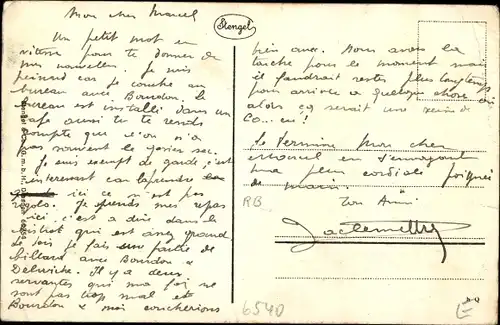 Mon cher Marcel
Stengel
Un petit mot en
vitesse pour te donner de
mes nouvelles. Je suis
peinard car je couche au
bureau avec Bourdon. le
bureau est installé dans un
café aussi tu te rends
compte que l'on n'a
pas souvent le gosier sec.
Je suis exempt de garde c'est
interessant car la prendre
ici ce n'est pas
rigolo. Je prends mes repas
ici, c'est a dire dans le
bistrot qui est assez grand.
Le soir je fais une partie de
billard avec Bourdon &
Delwiche. Il y a deux
servantes qui ma foi ne
sont pas trop mal et
Bourdon & moi coucherions
bien avec. Nous avons la
touche pour le moment mais
il faudrait rester plus longtemps
pour arriver a quelque chose ou
alors ça serait une
Je termine Mon cher
Marcel en t'envoyant
une plus cordiale poignée
de main.
RB
Ton Ami
6540